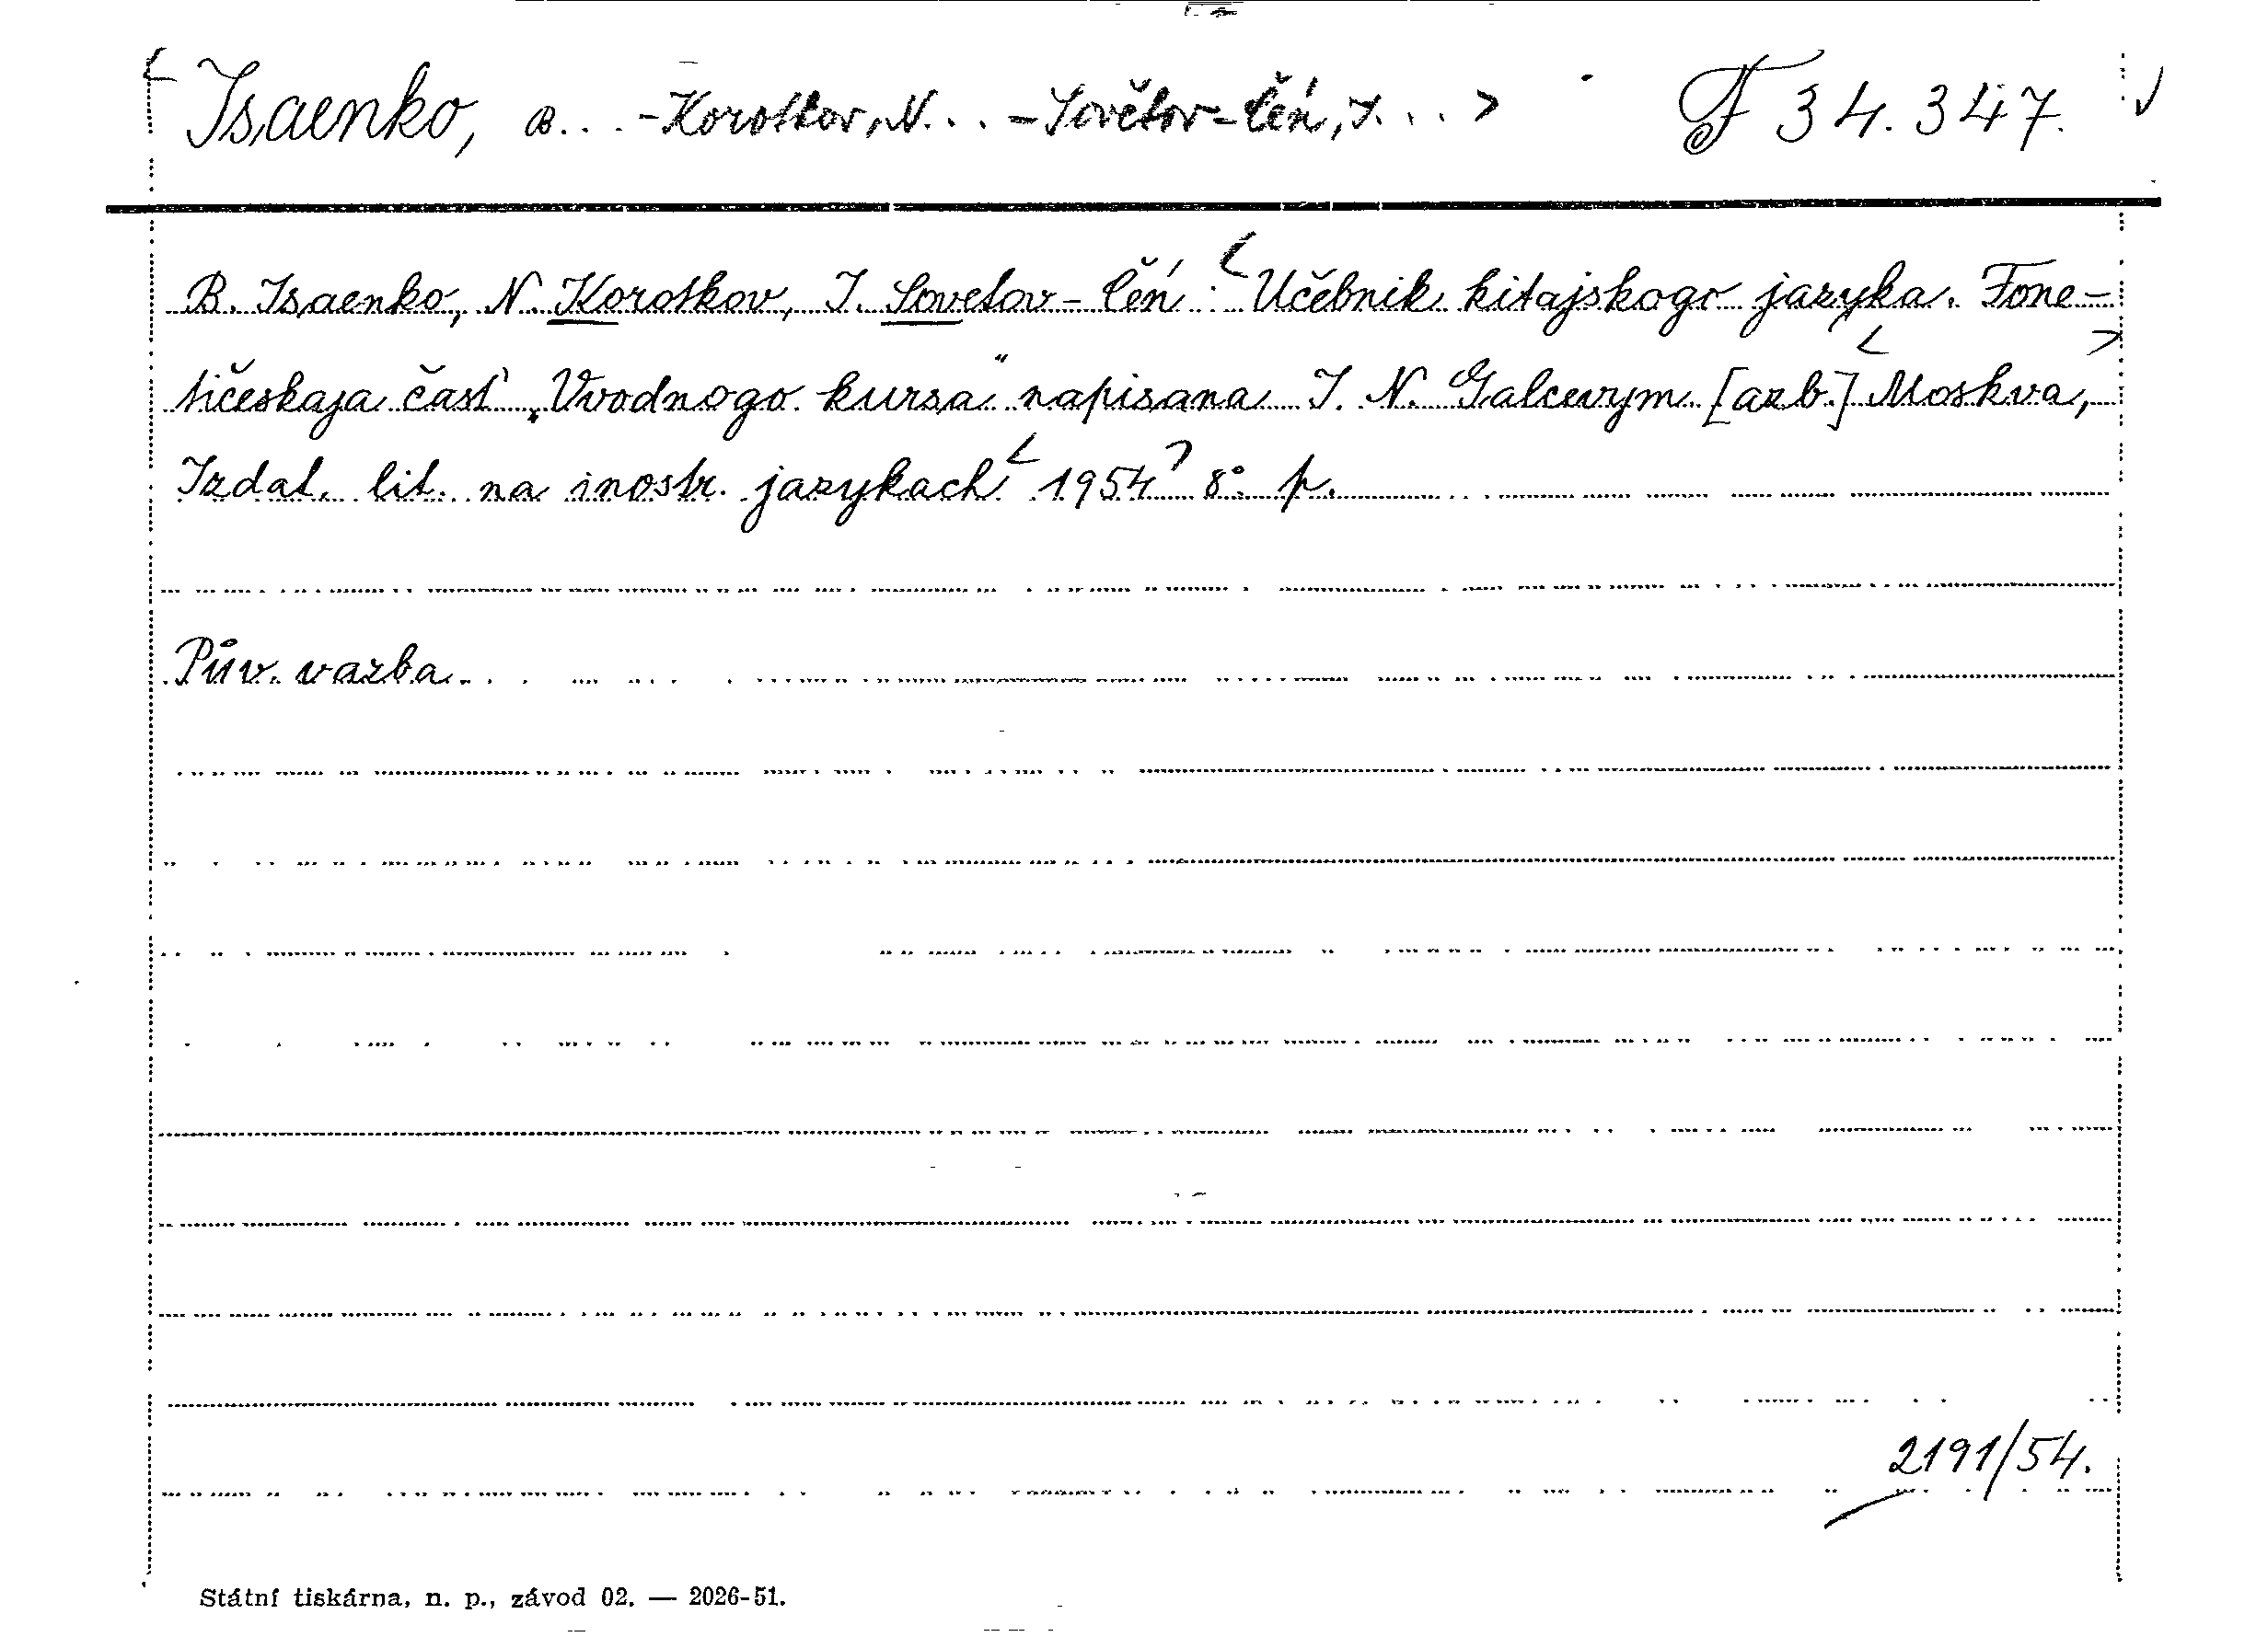 Isaenko, B... -Korotkov, N... -Sovětov-Čeń, I... F 34.347.
B. Isaenko, N. Korotkov, I. Sovetov-Čeń: Učebnik kitajskogo jazyka. Fone-
tičeskaja časť „Vvodnogo kursa" napisana I. N. Galcevym [azb.] Moskva,
Izdat. lit. na inostr. jazykach 1954 8° p.
Pův. vazba.
2191/54.
Státní tiskárna, n. p., závod 02. — 2026-51.